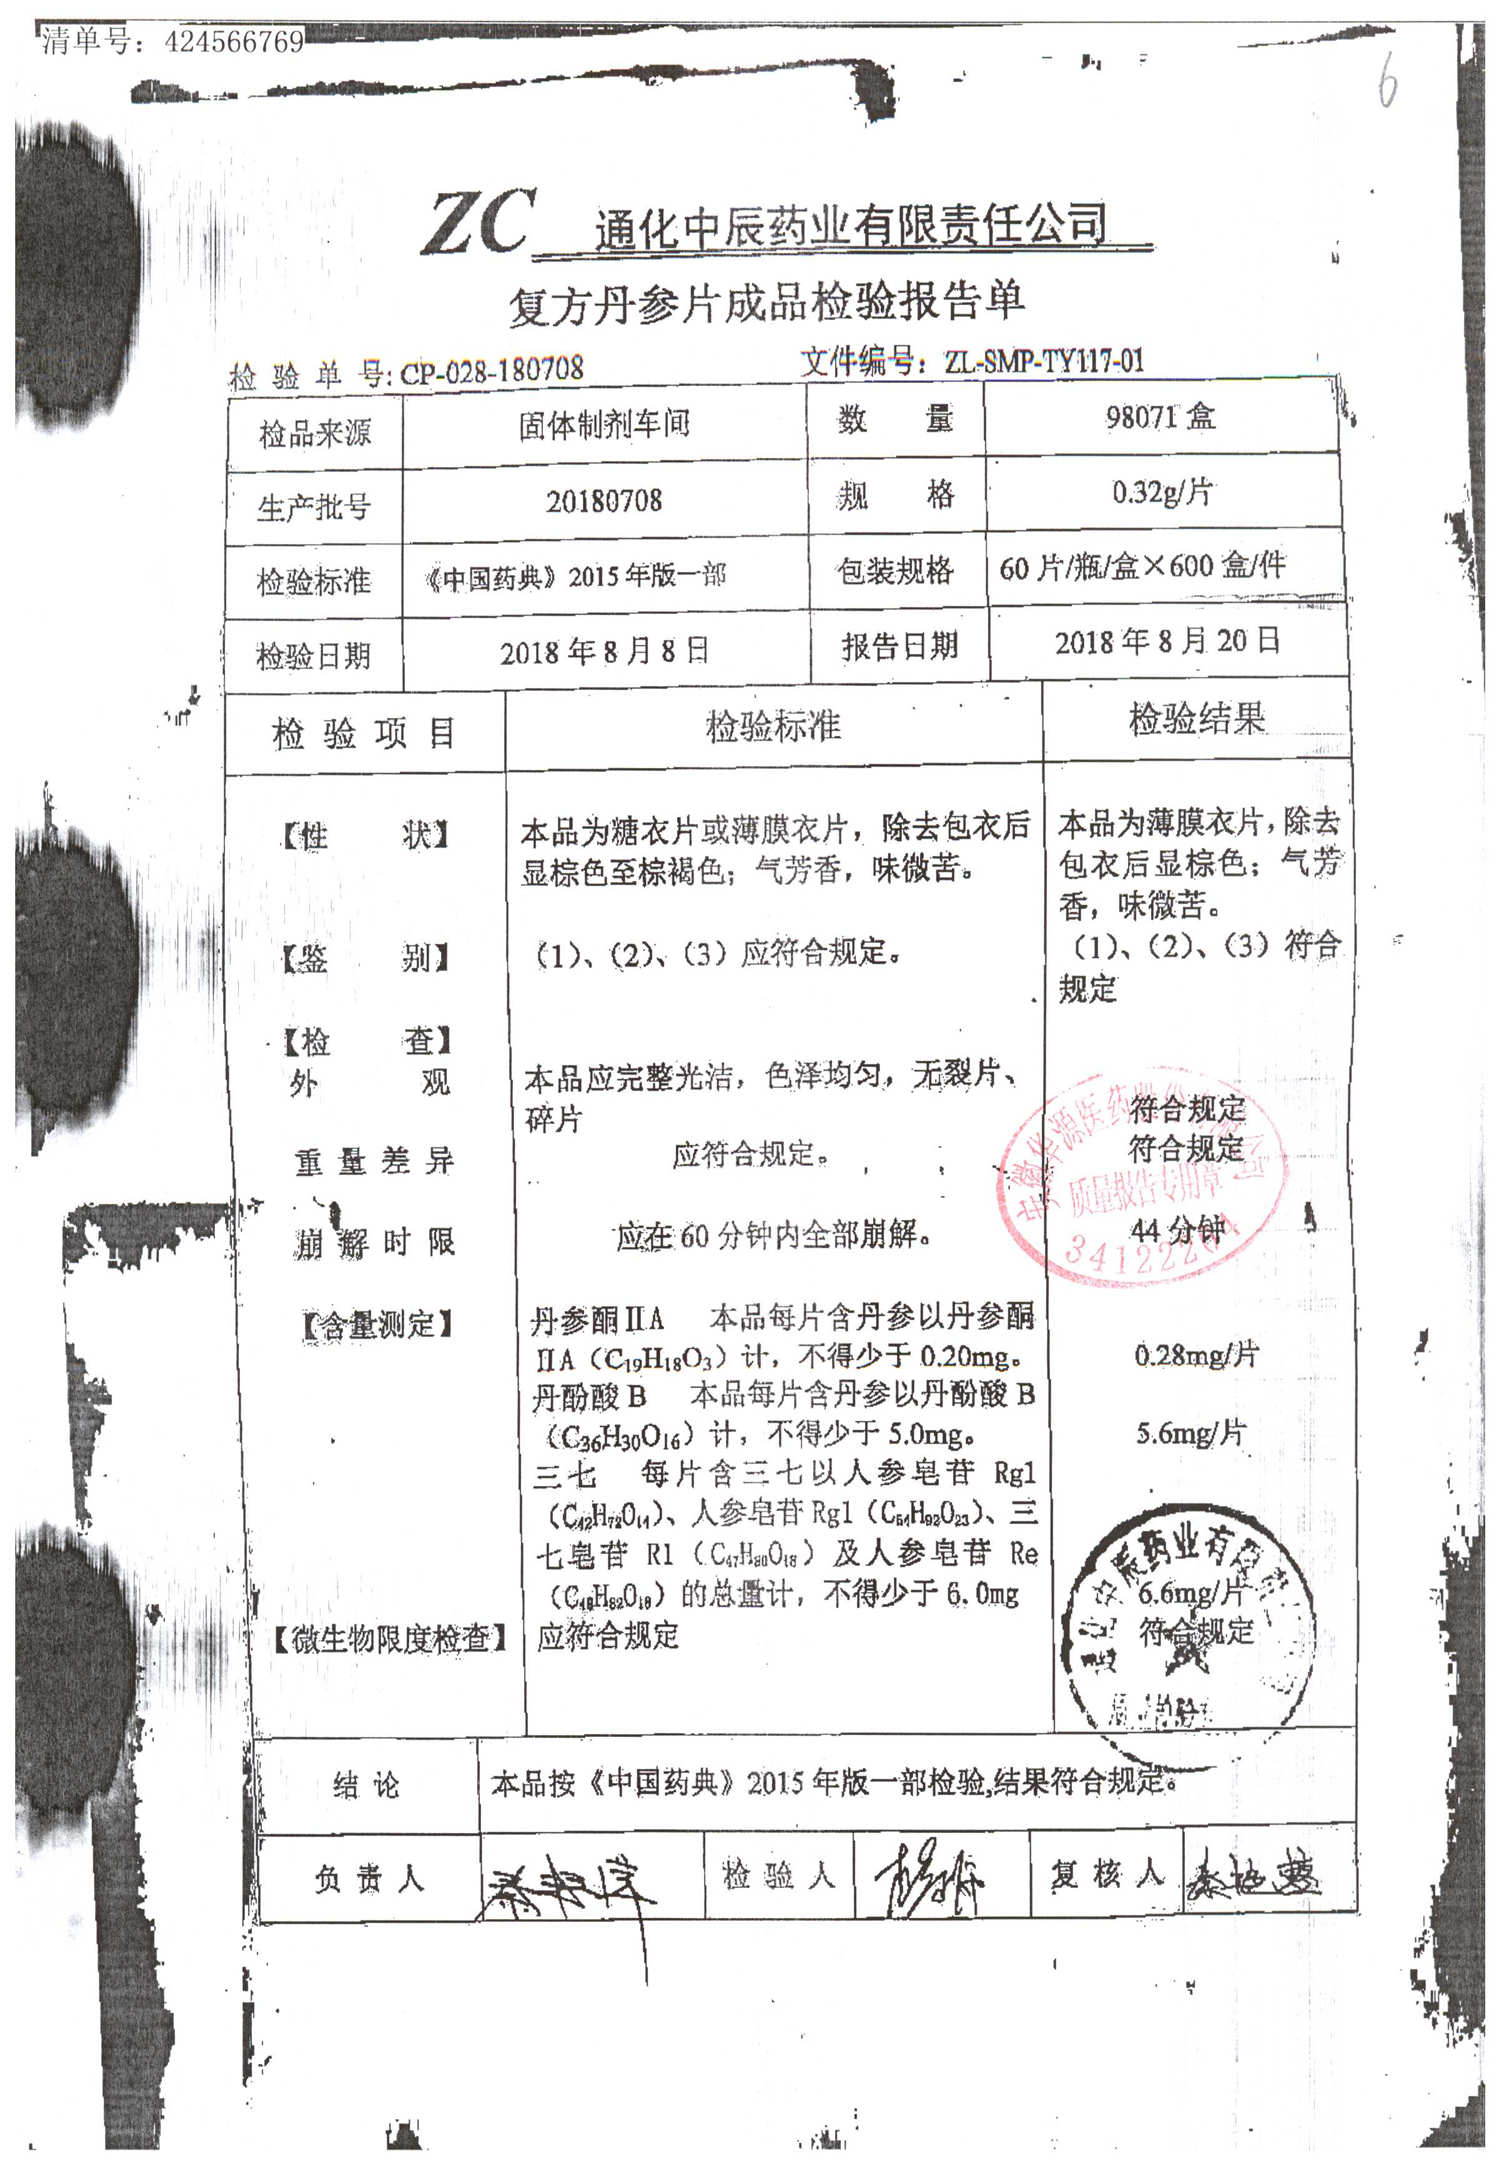 清单号：424566769
6
ZC 通化中辰药业有限责任公司
复方丹参片成品检验报告单
检验单号：CP-028-180708 文件编号：ZL-SMP-TY117-01
检品来源 固体制剂车间 数量 98071盒
生产批号 20180708 规格 0.32g/片
检验标准 《中国药典》2015年版一部 包装规格 60片/瓶/盒×600盒/件
检验日期 2018年8月8日 报告日期 2018年8月20日
检验项目 检验标准 检验结果
【性状】 本品为糖衣片或薄膜衣片，除去包衣后 本品为薄膜衣片，除去
显棕色至棕褐色；气芳香，味微苦。 包衣后显棕色；气芳
香，味微苦。
【鉴别】 （1）、（2）、（3）应符合规定。 （1）、（2）、（3）符合
规定
【检查】
外观 本品应完整光洁，色泽均匀，无裂片、 符合规定
碎片
重量差异 应符合规定。 符合规定
崩解时限 应在60分钟内全部崩解。 44分钟
【含量测定】 丹参酮ⅡA 本品每片含丹参以丹参酮
ⅡA（C₁₉H₁₈O₃）计，不得少于0.20mg。 0.28mg/片
丹酚酸B 本品每片含丹参以丹酚酸B
（C₃₆H₃₀O₁₆）计，不得少于5.0mg。 5.6mg/片
三七 每片含三七以人参皂苷 Rg1
（C₄₂H₇₂O₁₄）、人参皂苷Rg1（C₅₄H₉₂O₂₃）、三
七皂苷 R1（C₄₇H₈₀O₁₈）及人参皂苷 Re
（C₄₈H₈₂O₁₈）的总量计，不得少于6.0mg 6.6mg/片
【微生物限度检查】 应符合规定 符合规定
质量报告专用章
结论 本品按《中国药典》2015年版一部检验,结果符合规定。
负责人 检验人 复核人